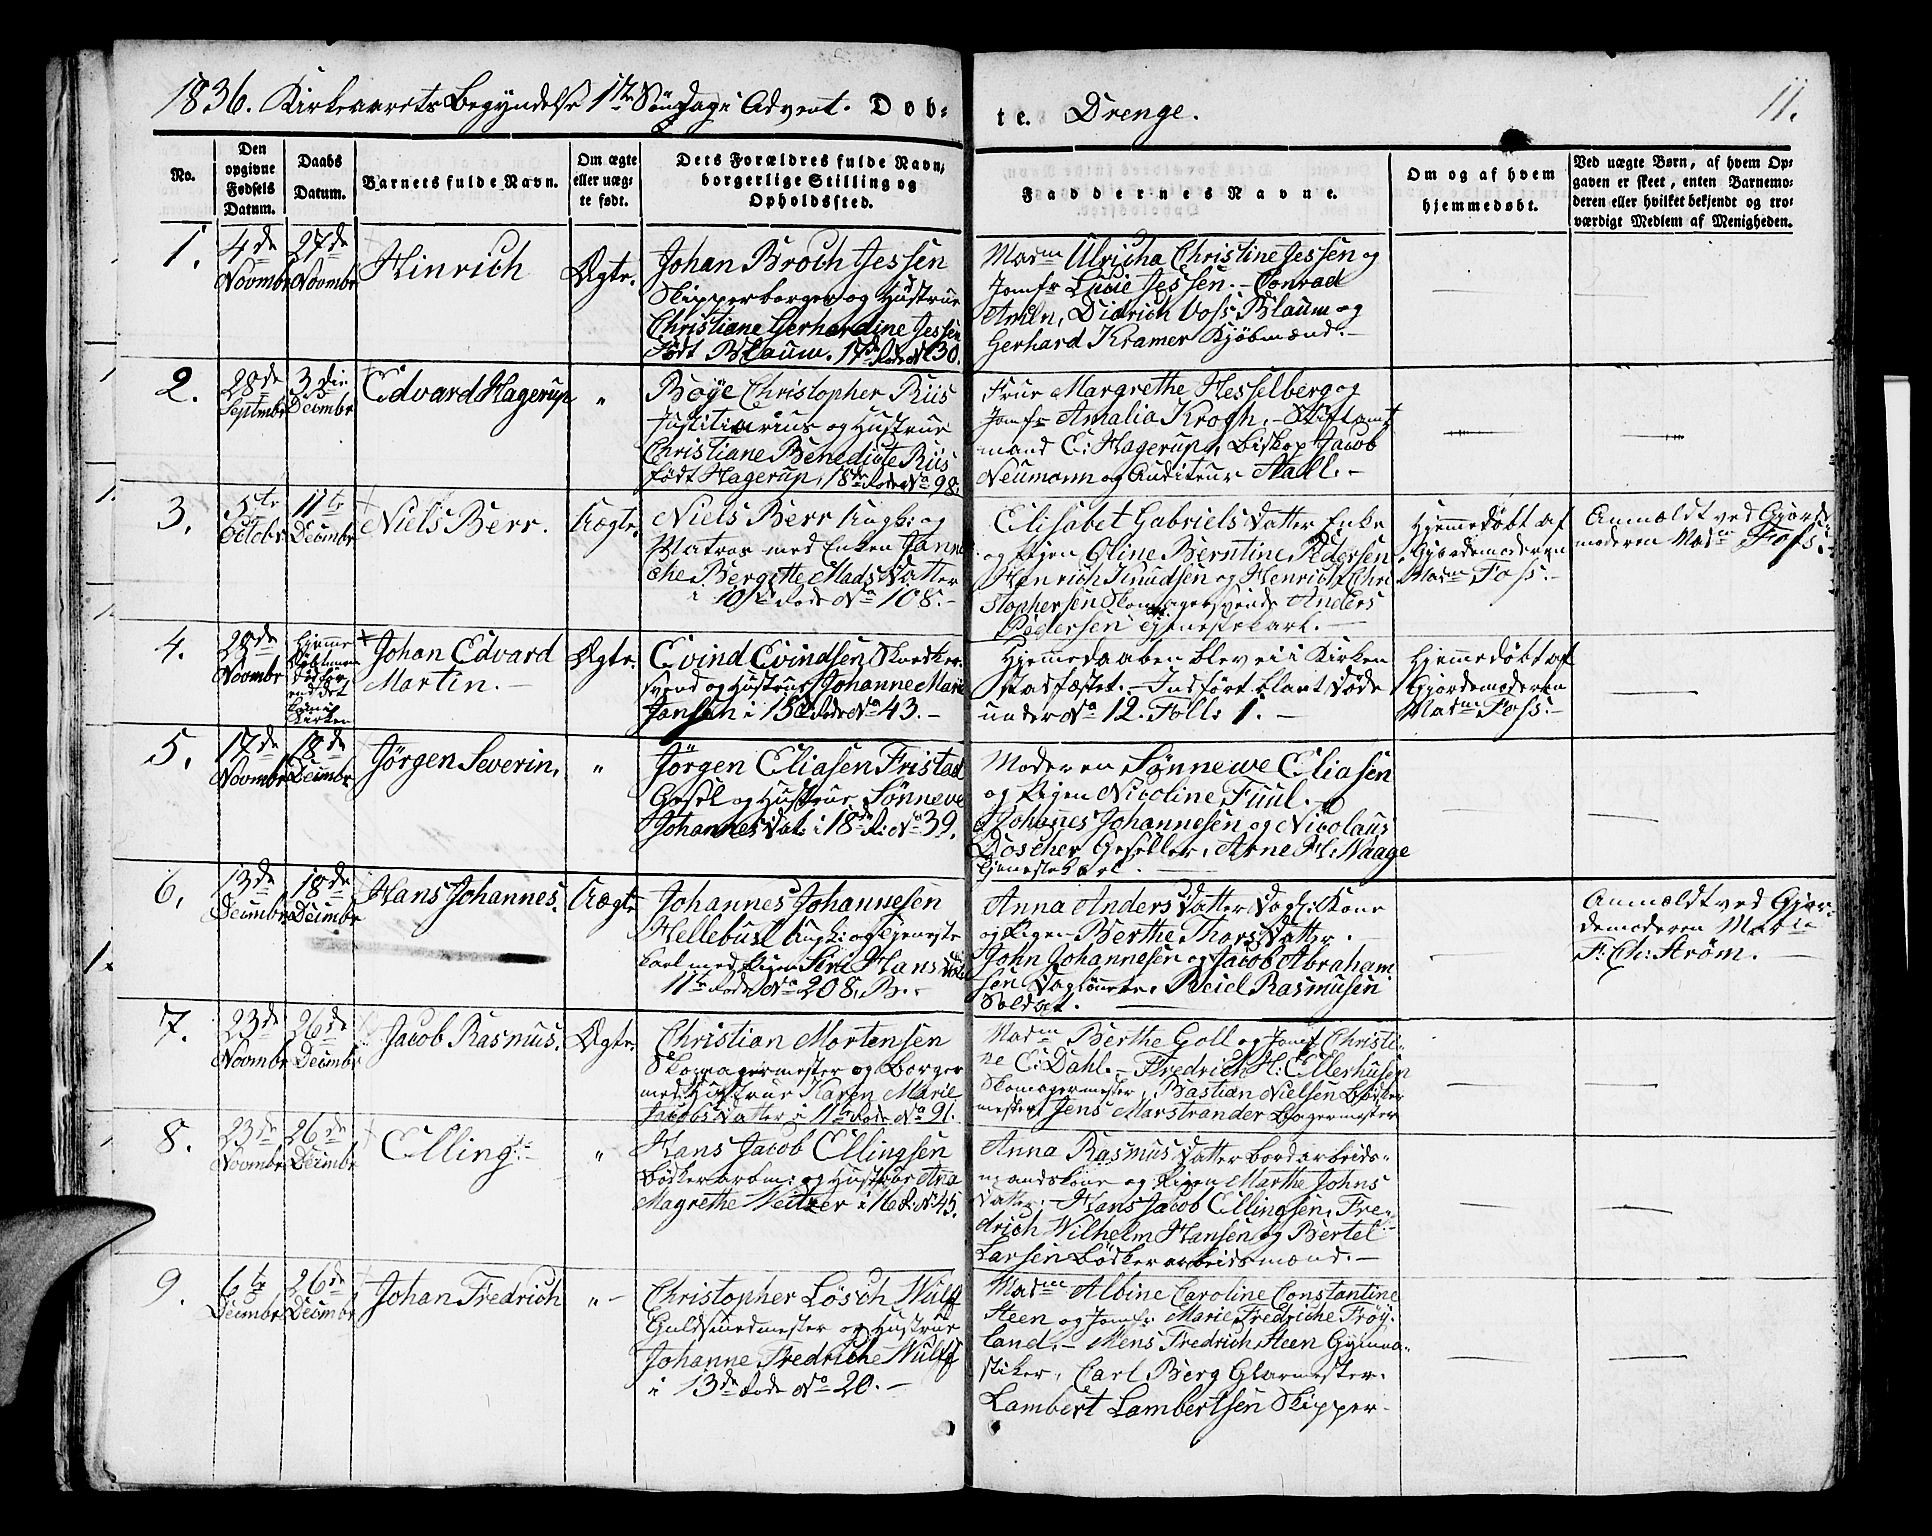 1836. Kirkeaarets Begyndelse 1ste Søndag i Advent. Döb-
te. Drenge. 11.
No.
Den
opgivne
Fødsels
Datum.
Daabs
Datum.
Barnets fulde Navn.
Om ægte
eller uæg-
te født.
Dets Forældres fulde Navn,
borgerlige Stilling og
Opholdssted.
Faddernes Navne.
Om og af hvem
hjemmedøbt.
Ved uægte Børn, af hvem Op-
gaven er skeet, enten Barnemo-
deren eller hvilket bekjendt og tro-
værdigt Medlem af Menigheden.
1.
4de
Novmbr
27de
Novmbr
Hinrich
Ægte.
Johan Broch Jessen
Skipperborger og Hustrue
Christiane Gerhardine Jessen
født Blaum. 17de Rode No 30.
Madm Ulricha Christine Jessen og
Jomfr Lucie Jessen. – Conrad
Amln, Didrich Voss Blaum og
Gerhard Kramer Kjøbmænd. –
2.
28de
Septmbr
3die
Decmbr
Edvard Hagerup
"
Boye Christopher Riis
Justitiarius og Hustrue
Christiane Benedicte Riis
født Hagerup, 18de Rode No 98.
Frue Margrethe Hesselberg og
Jomfr Amalia Krogh. – Stiftamt
mand E: Hagerup, Biskop Jacob
Neumann og Auditeur Stall. –
3.
5te
Octobr
11te
Decmbr
Niels Berr.
Uægte.
Niels Berr Ungk: og
Matros med Enken Janni
che Bergitte Mads Datter
i 10de Rode No 108. –
Elisabet Gabriels Datter Enke
og Pigen Oline Berntine Pedersen
Henrich Knudsen og Henrich Chri
stophersen Skomagersvende Anders
Pedersen Tjenestekarl. –
Hjemmedøbt af
Gjordemoderen
Madm Foss. –
Anmeldt ved Gjorde
moderen Madm Foss.
4.
29de
Novmbr
Hjemme
døbt men
død før
end det
kom i
Kirken
Johan Edvard
Martin. –
Ægte.
Evind Evindsen Snedker
svend og Hustrue Johanne Marie
Jansen i 15de Rode No 43. –
Hjemmedaaben blev ei i Kirken
stadfæstet. – Indført blant Døde
under No 12. Foll: 1. –
Hjemmedøbt af
Gjordemoderen
Madm Foss. –
5.
17de
Novmbr
18de
Decmbr
Jørgen Severin,
"
Jørgen Eliasen Fristad
Gesel og Hustrue Sønneve
Johannes Dat: i 18de R: No 39.
Moderen Sønnewe Eliasen
og Pigen Nicoline Fuul. –
Johanes Johannesen og Nicolaus
Doscher Geseller, Arne H: Waage
Tjenestekarl. –
6.
13de
Decmbr
18de
Decmbr
Hans Johannes.
Uægte
Johannes Johannesen
Hellebust Ungk: og Tjeneste
karl med Pigen Siri Hans Dat
11te Rode No 208, B. –
Anna Anders Datter Dagk: Kone
og Pigen Berthe Thors Datter. –
John Johannesen og Jacob Abraham
sen Daglønnere. Reiel Rasmusen
Soldat. –
Anmeldt ved Gjor-
demoderen Madm
F: Ch: Strøm. –
7.
23de
Novmbr
26de
Decmbr
Jacob Rasmus.
Ægte.
Christian Mortensen
Skomagermester og Borger
med Hustrue Karen Marie
Jacobs Datter i 11te Rode No 91.
Madm Berthe Goll og Jomf Christi-
ne C: Dahl. – Fredrich H: Ellerhusen
Skomagermester, Bastian Nielsen Bødker
mester, Jens Marstrander Bagermester
8.
23de
Novmbr
26de
Decmbr
Elling. –
"
Hans Jacob Ellingsen
Bødkerarbm: og Hustrue Ana
Magrethe Weitzer i 16 R: No 45.
Anna Rasmus Datter bordarbeids-
mandskone og Pigen Marthe Johns
Datter. – Hans Jacob Ellingsen, Fre-
drich Wilhelm Hansen og Bertel
Larsen Bødkerarbeidsmænd. –
9.
6te
Decmbr
26de
Decmbr
Johan Fredrich
" –
Christopher Lösch Wulff
Guldsmedmester og Hustrue
Johanne Fredriche Wulff
i 13de Rode No 20. –
Madm Albine Caroline Constantine
Steen og Jomfr Marie Fredriche Frøy-
land. – Mens Fredrich Steen Gymna-
stiker, Carl Berg Glarmester.
Lambert Lambertsen Skipper –